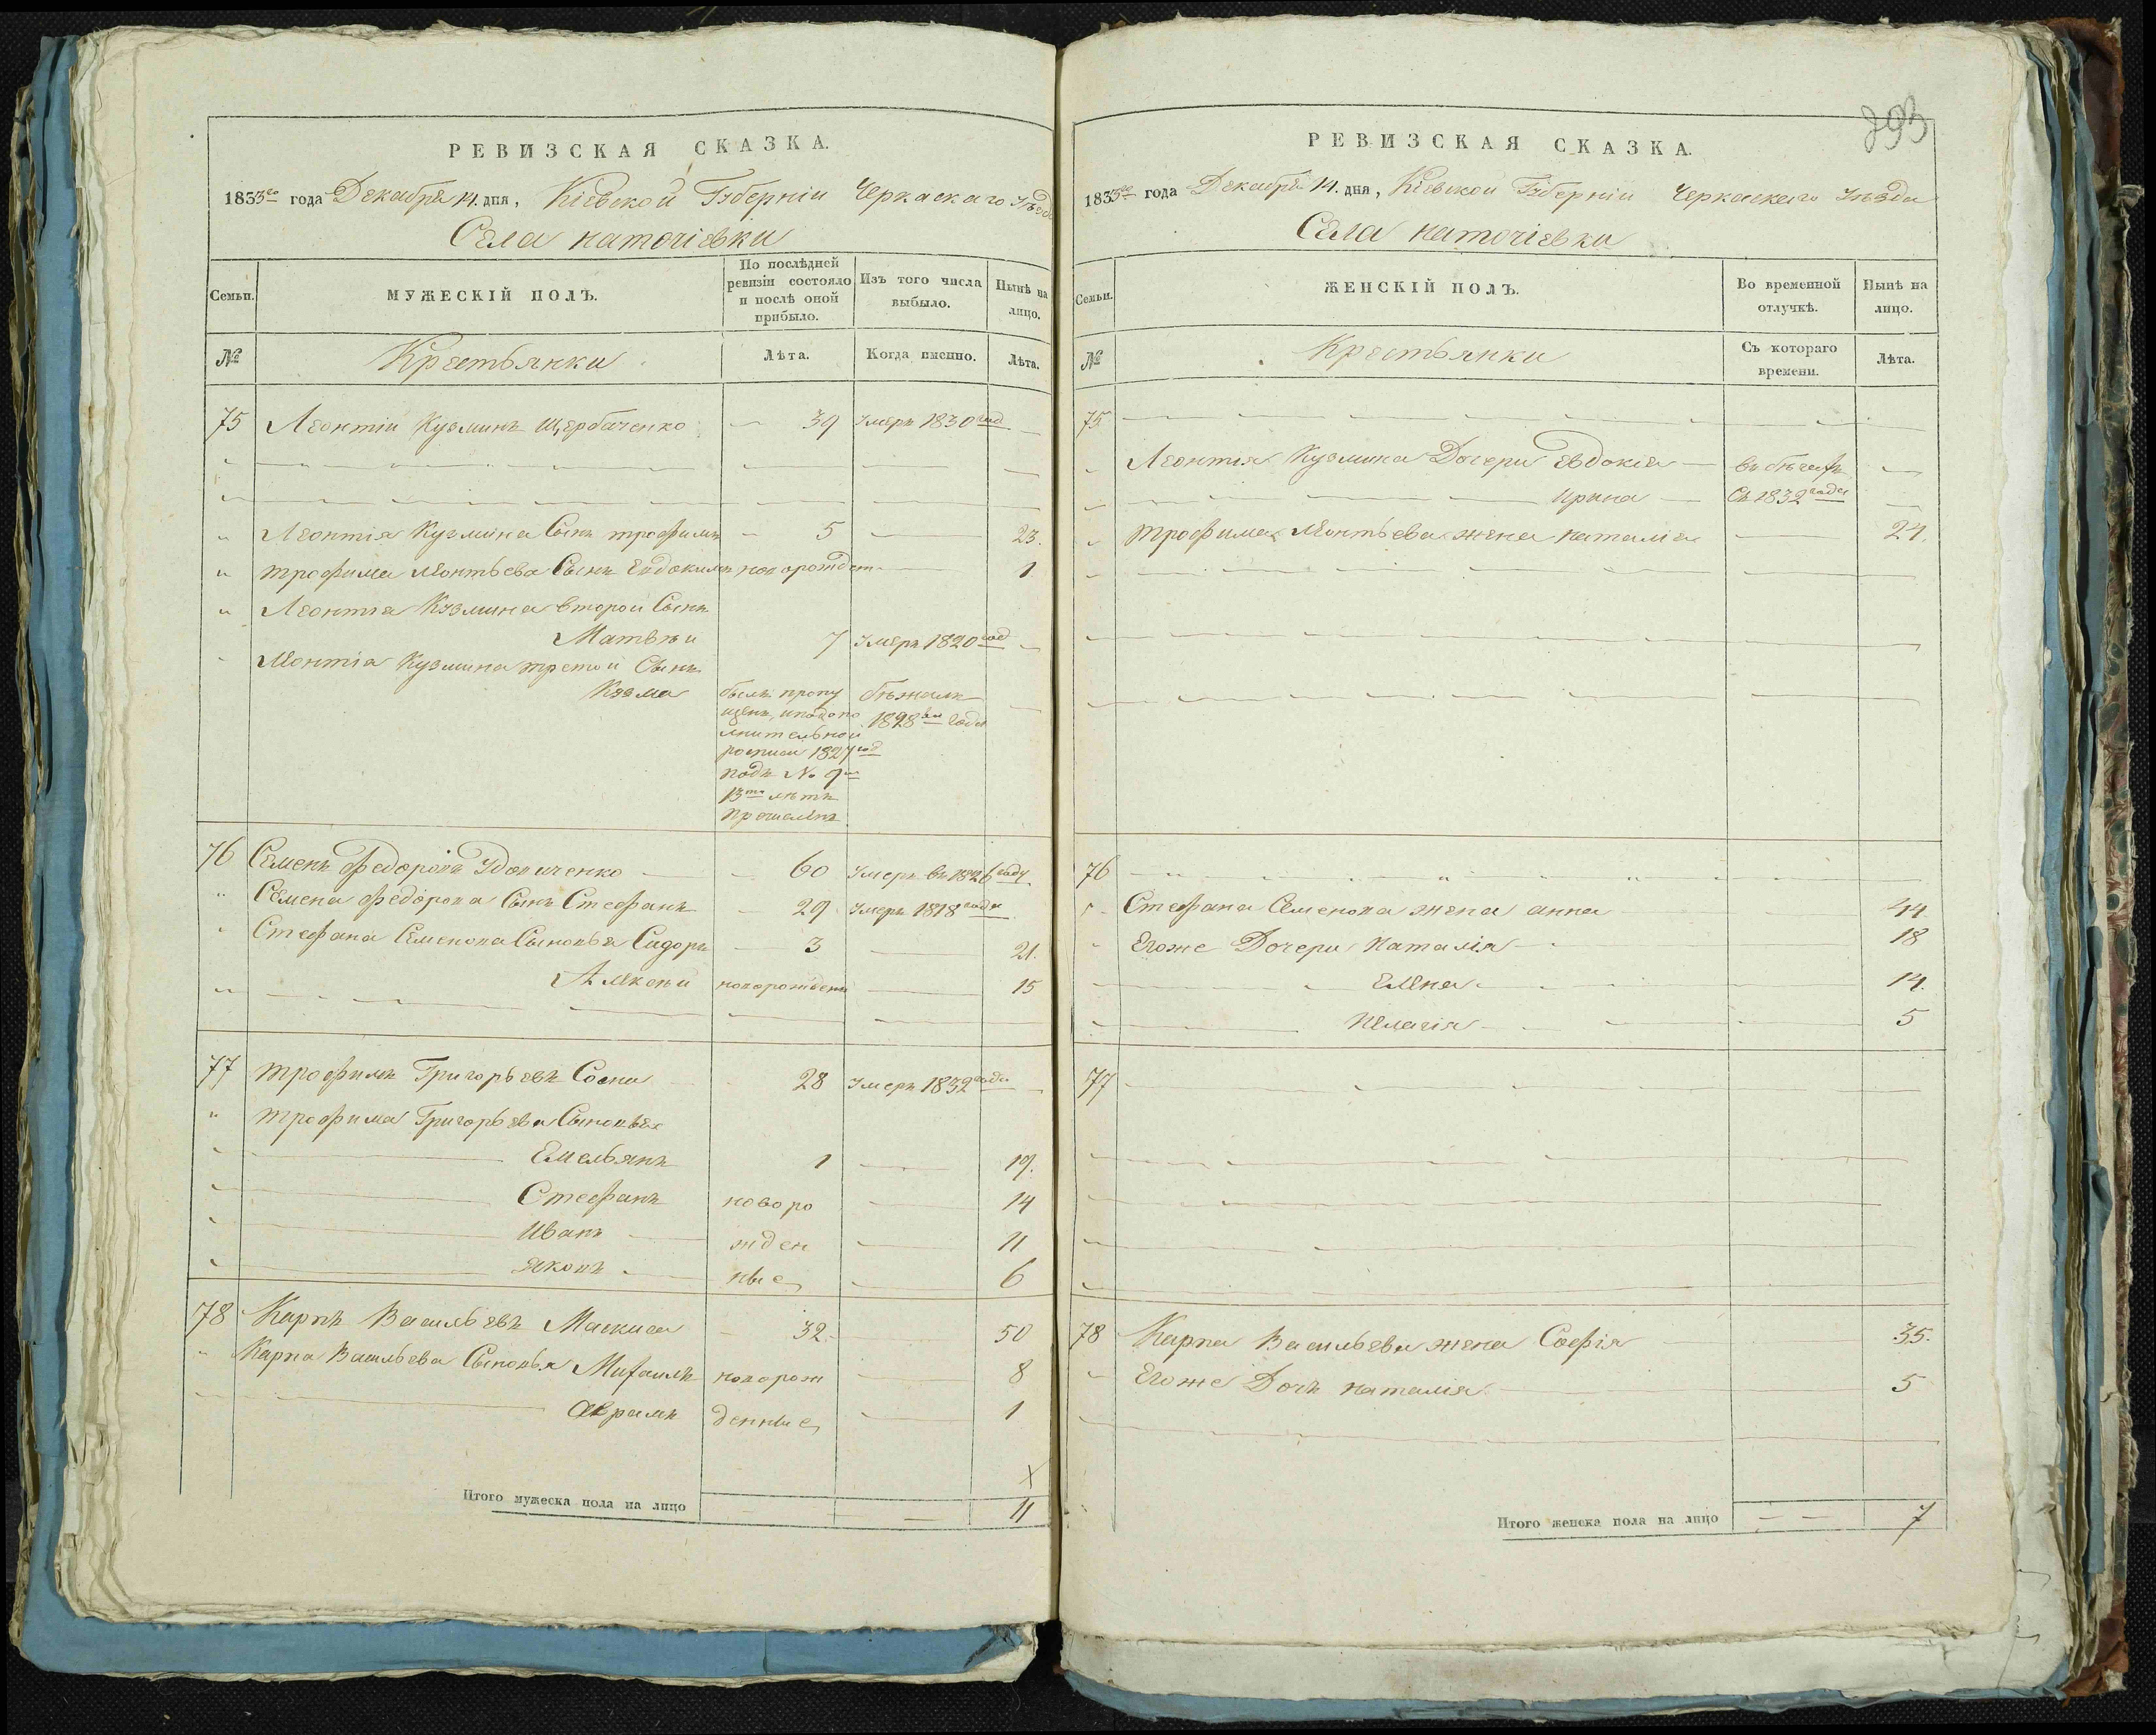 РЕВИЗСКАЯ СКАЗКА.
1833го года Декабря 14. дня, Кіевской Губерніи Черкаскаго Уѣзда
Села
Семьи.
МУЖЕСКІЙ ПОЛЪ.
По послѣдней ревизіи состояло и послѣ оной прибыло.
Изъ того числа выбыло.
Нынѣ на лицо.
№
Крестьянки
Лѣта.
Когда именно.
Лѣта.
75 Леонтій Кузминъ Щербаченко 39 Умеръ 1830 год
Леонтія Кузмина Сынъ трофимъ 5 23.
трофима леонтьева Сынъ Евдокимъ новорожден 1
Леонтія Кузмина второй Сынъ
Матвѣй 7 Умеръ 1820 год
Леонтія Кузмина третой Сынъ
Кузма былъ пропу бѣжалъ
щенъ, иподопо 1828го года
лнительной
росписи 1827 год
подъ № 9
13ти лѣтъ
76 Семенъ Федоровъ 60 Умеръ въ 1826 году
Семена Федорова Сынъ Стефанъ 29 Умеръ 1818 года
Стефана Семенова Сыновья Сидоръ 3 21.
Алексѣй новорожденн 15
77 трофимъ Григорьевъ Сосна 28 Умеръ 1832 года
трофима Григорьева Сыновья
Емельянъ 1 19.
Стефанъ новоро 14
Иванъ жден 11
яковъ ные 6
78 Карпъ Васильевъ 32. 50
Карпа Васильева Сыновья Михаилъ новорож 8
аврамъ денные 1
Х
Итого мужеска пола на лицо 11
893
РЕВИЗСКАЯ СКАЗКА.
1833го года Декабря 14. дня, Кіевской Губерніи Черкаскаго Уѣзда
Села
Семьи.
ЖЕНСКІЙ ПОЛЪ.
Во временной отлучкѣ.
Нынѣ на лицо.
№
Крестьянки
Съ котораго времени.
Лѣта.
75
Леонтія Кузмина Дочери Евдокія въ бѣгахъ
Ирина Съ 1832 года
трофима леонтьева жена наталія 24.
76
Стефана Семенова жена анна 44
Егоже Дочери Наталія 18
Елена 14.
Пелагія 5
77
78 Карпа Васильева жена Софія 35.
Егоже Дочь наталія 5
Итого женска пола на лицо 7